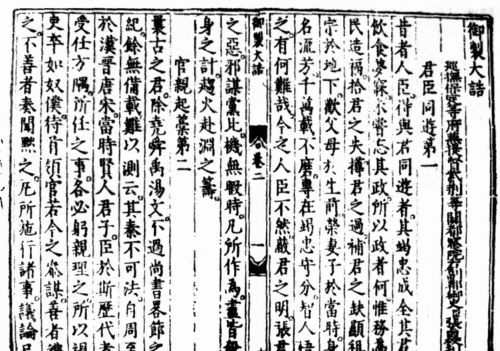 御製大誥
巡撫保定等府兼提督紫荊等關都察院右副都御史張
君臣同遊第一
昔者人臣得與君同遊者其竭忠成全其君
飲食夢寐未嘗忘其政所以政者何惟務為
民造福拾君之失撙君之過補君之缺顯祖
宗於地下歡父母於生前榮妻子於當時身
名流芳千萬載不磨專在竭忠守分智人悟
之有何難哉今之人臣不然蔽君之明張君
卷二
一
之惡邪謀黨比機無暇時凡所作為盡皆殺
身之計趨火赴淵之籌
官親起藁第二
曩古之君除堯舜禹湯文不過尚書畧節之
紀餘無備載難以測云其秦不可法自周至
於漢晉唐宋當時賢人君子臣於斯歷代者
受任方隅所任之事各必躬親理之所以
吏卒如奴僕待首領官若今之參謀善者
之不善者奏聞黜之凡所施行諸事議論